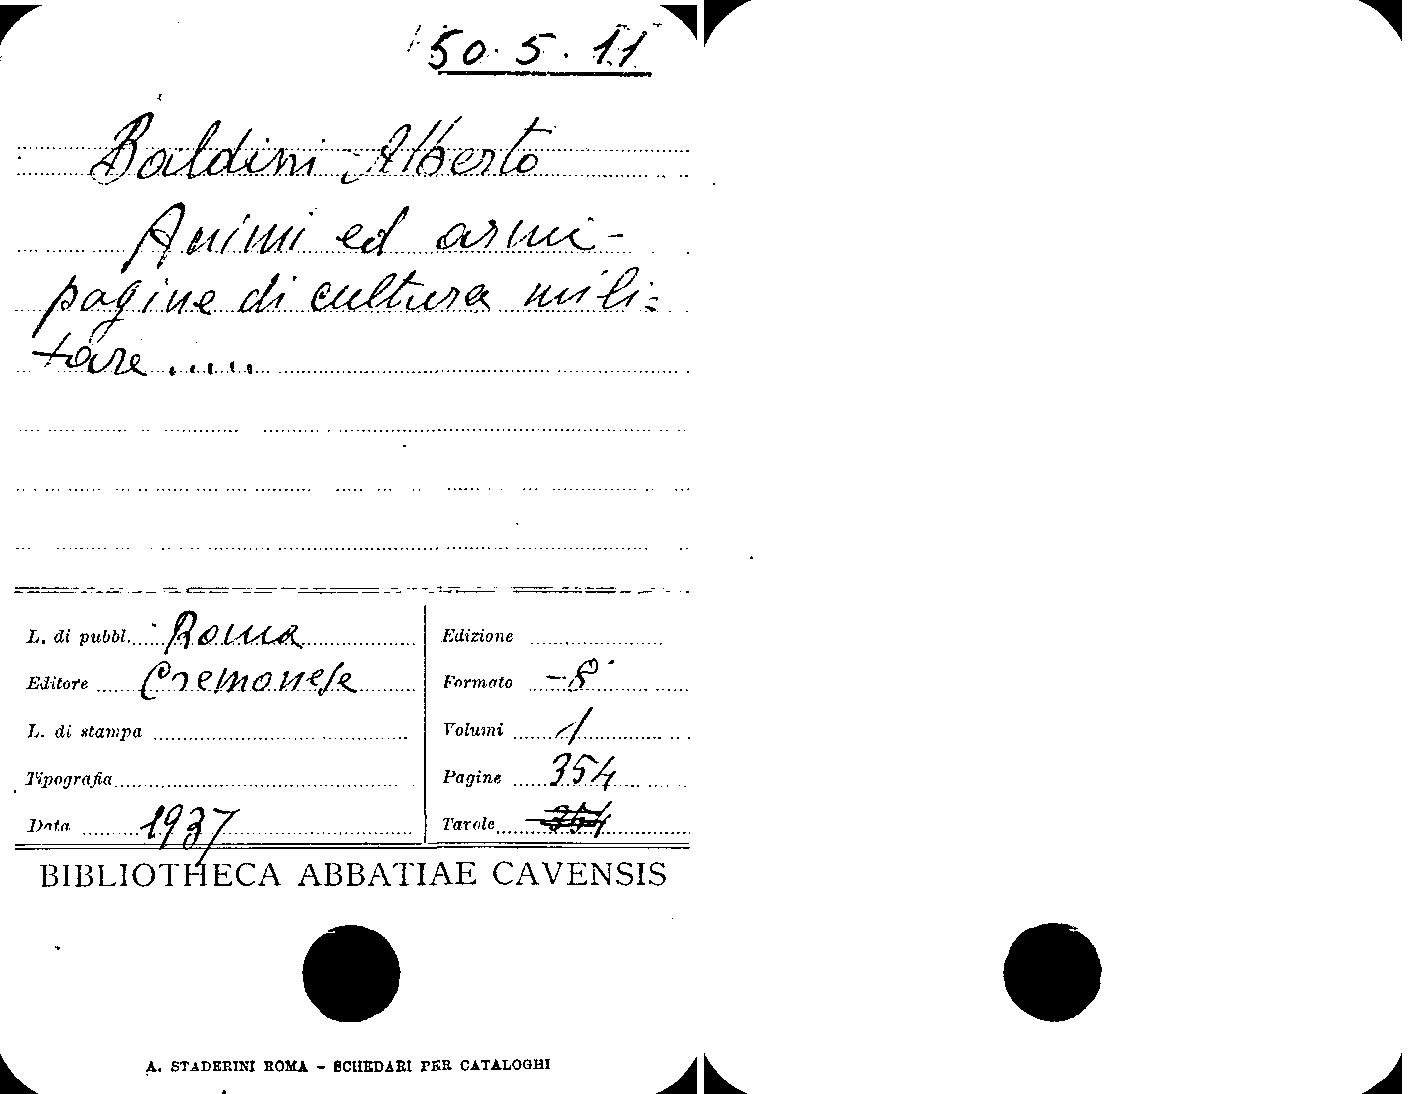 50.5.11
Baldini Alberto
Animi ed armi-
pagine di cultura mili=
tare .....
L. di pubbl. Roma
Editore Cremonese
L. di stampa
Tipografia
Data 1937
Edizione
Formato -8°
Volumi 1
Pagine 354
Tavole 354
BIBLIOTHECA ABBATIAE CAVENSIS
A. STADERINI ROMA - SCHEDARI PER CATALOGHI